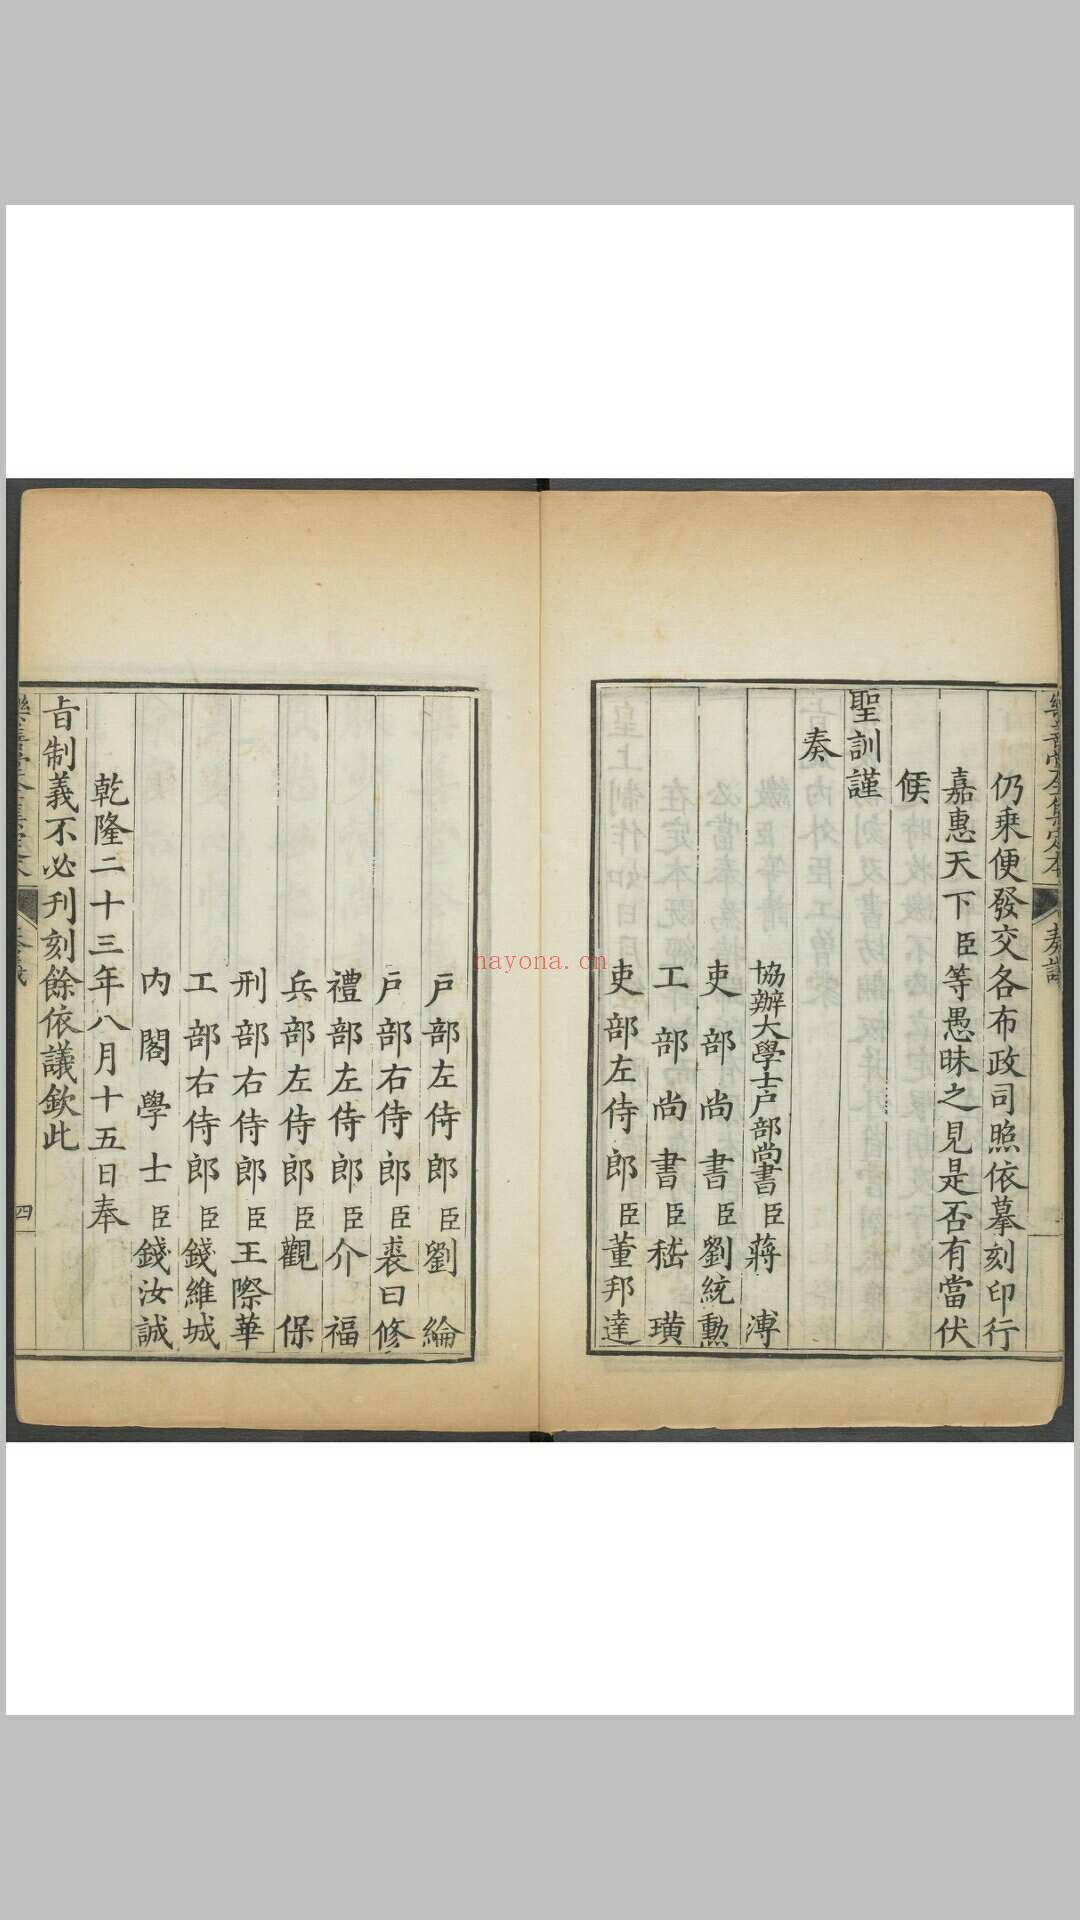 樂善堂全集定本
奏議
仍乗便發交各布政司照依摹刻印行
嘉惠天下臣等愚昧之見是否有當伏
候
聖訓謹
奏
協辦大學士戸部尚書臣蔣溥
吏部尚書臣劉統勲
工部尚書臣嵇璜
吏部左侍郎臣董邦達
戸部左侍郎臣劉綸
戸部右侍郎臣裘曰修
禮部左侍郎臣介福
兵部左侍郎臣觀保
刑部右侍郎臣王際華
工部右侍郎臣錢維城
内閣學士臣錢汝誠
乾隆二十三年八月十五日奉
旨制義不必刊刻餘依議欽此
四
hayona.cn